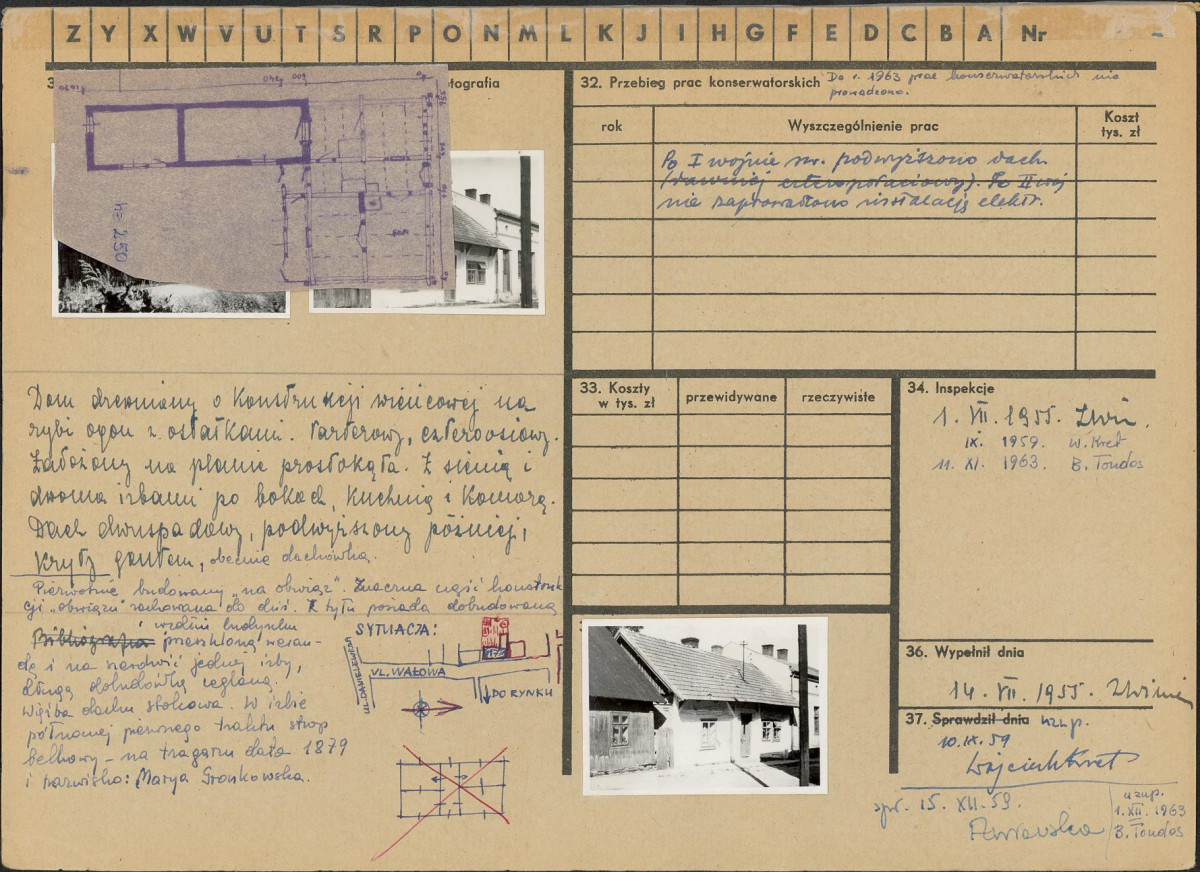 Z Y X W V U T S R P O N M L K J I H G F E D C B A Nr
3
otografia
600
h= 250
32. Przebieg prac konserwatorskich Do r. 1963 prac konserwatorskich nie
prowadzono.
rok Wyszczególnienie prac Koszt
tys. zł
Po I wojnie św. podwyższono dach
(dawniej czteropołaciowy). Po II woj
nie zaprowadzono instalację elektr.
Dom drewniany o konstrukcji wieńcowej na
rybi ogon z ostatkami. Parterowy, czteroosiowy.
Założony na planie prostokąta. Z sienią i
dwoma izbami po bokach, kuchnią i komorą.
Dach dwuspadowy, podwyższony później,
kryty gontem, obecnie dachówką.
Pierwotnie budowany "na obwiąz". Znaczna część konstruk
cji "obwiązu" zachowana do dziś. Z tyłu posiada dobudowaną
wzdłuż budynku
Bibliografia przeszkloną weran-
dę i na szerokość jednej izby,
długą dobudówkę ceglaną.
Więźba dachu stolcowa. W izbie
północnej pierwszego traktu strop
belkowy - na tragarzu data 1879
i nazwisko: Marya Gronkowska.
SYTUACJA:
UL. DANIELEWICZA
UL. WAŁOWA
DO RYNKU
33. Koszty
w tys. zł przewidywane rzeczywiste
34. Inspekcje
1. VII. 1955.
IX. 1959. W. Kret
11. XI. 1963. B. Tondos
36. Wypełnił dnia
14. VII. 1955
37. Sprawdził dnia uzup.
10.IX.59
Wojciech Kret
spr. 15. XII. 59.
uzup.
1. XII. 1963
B. Tondos